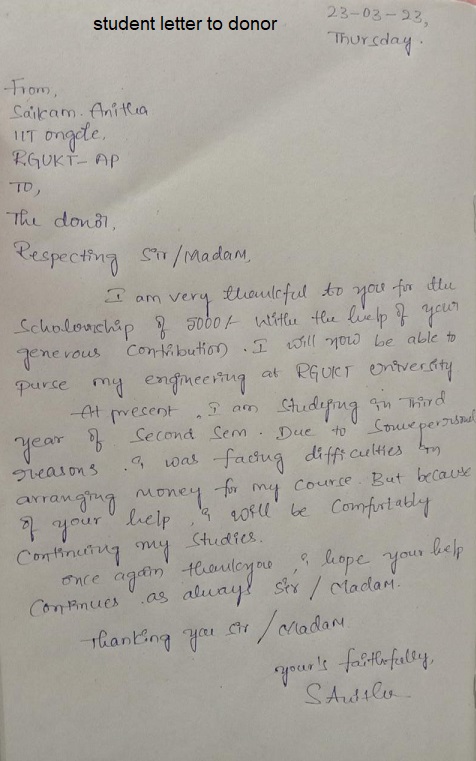 student letter to donor
23-03-23,
Thursday.
From,
Saikam. Anitha
IIT ongole,
RGUKT-AP
TO,
The donor,
Respecting Sir/Madam,
I am very thankful to you for the
Scholarship of 5000/- With the help of your
generous contribution. I will now be able to
purse my engineering at RGUKT University
At present, I am Studying in Third
year of Second Sem. Due to Some personal
reasons. I was facing difficulties in
arranging money for my course. But because
of your help, I will be Comfortably
Continuing my Studies.
once again thankyou, I hope your help
Continues as always Sir / Madam.
Thanking you Sir / Madam
your's faithfully,
S Anitha